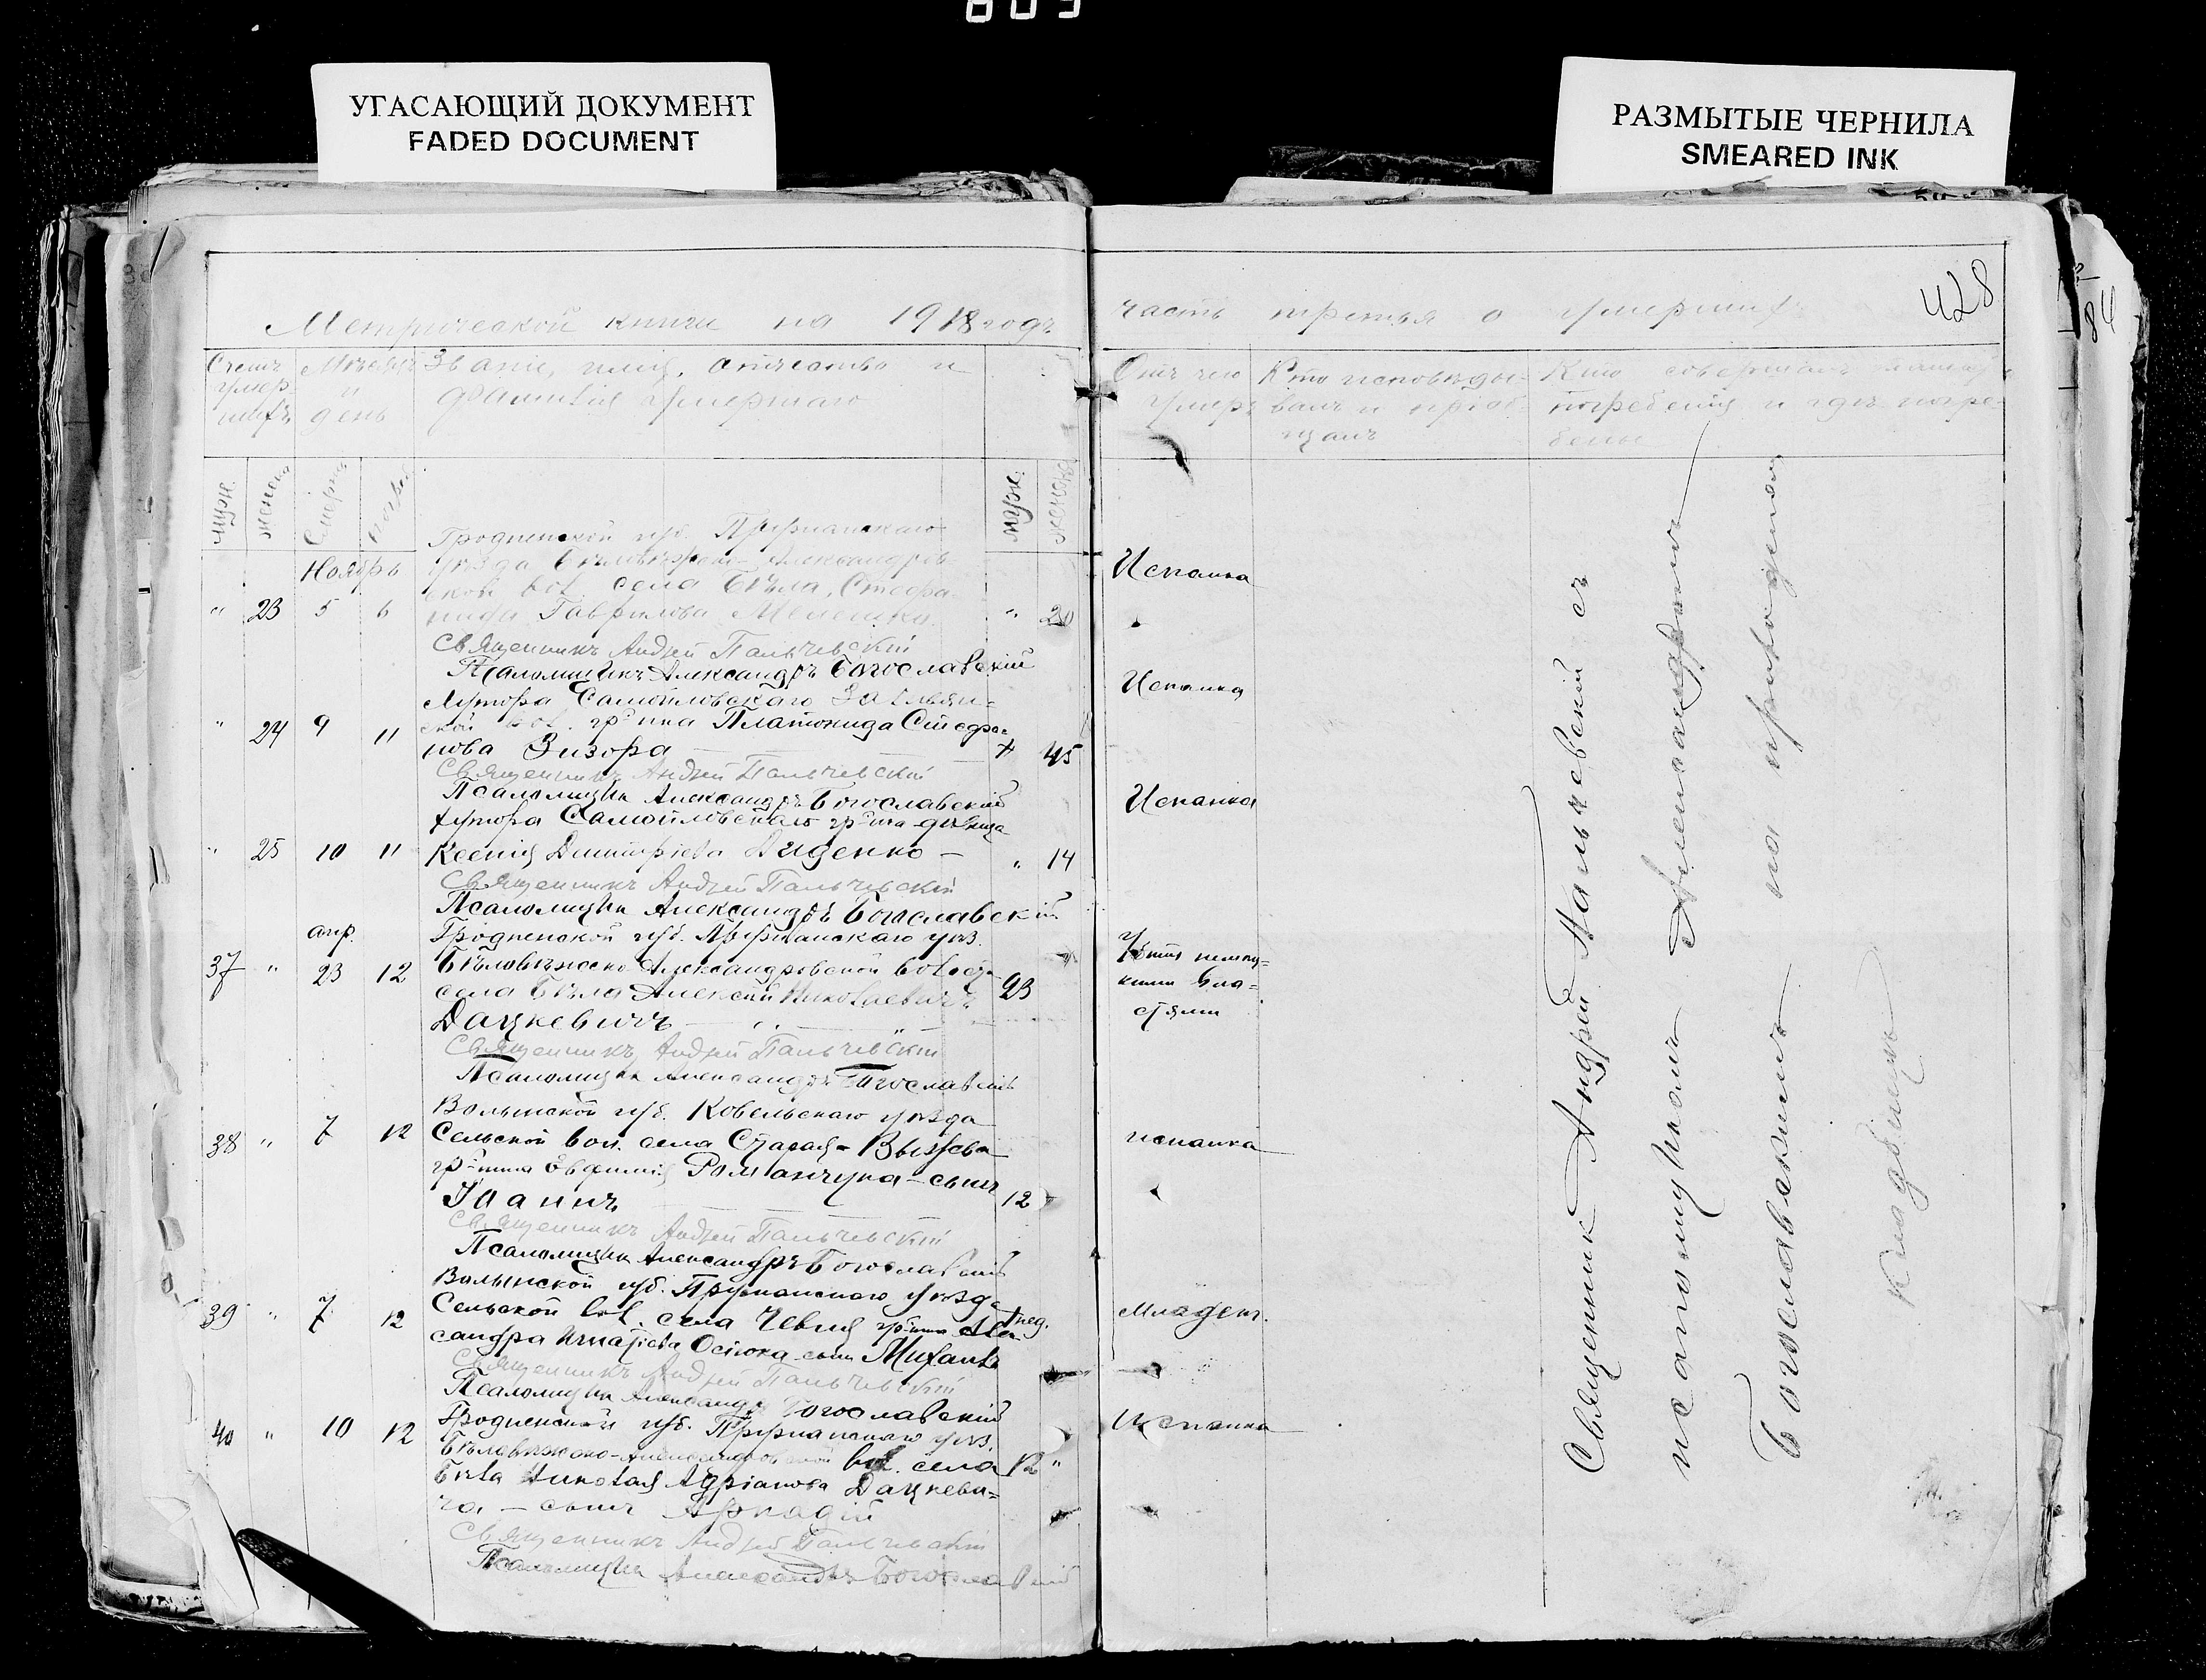 803
УГАСАЮЩИЙ ДОКУМЕНТ
FADED DOCUMENT
РАЗМЫТЫЕ ЧЕРНИЛА
SMEARED INK
84
428
Метрической книги на 1918 годъ
часть третья о умершихъ
Счетъ умершихъ
Мѣсяцъ и день
Званіе, имя, отчество и
фамилія умершаго
Отъ чего
умеръ
Кто исповѣды-
валъ и пріоб-
щалъ
Кто совершалъ
погребенія и гдѣ погре-
бены
муж.
женск
муж.
женск
Гродненской губ. Пружанскаго
Ноябрь
уѣзда Бѣловѣжско-Александров
ской вол. села Бѣла, Стефа-
" 23 5 6
нида Гаврилова Мелешко
" 20
Испанка
Священникъ Андрей Пальчевскій
Псаломщикъ Александръ Богославскій
Хутора Самойловскаго
" 24 9 11
ской вол. гр-нка Платонида Стефа-
нова Зизора
45
Испанка
Священникъ Андрей Пальчевскій
Псаломщикъ Александръ Богославскій
хутора Самойловскаго гр-на дѣвица
" 25 10 11
Ксенія Димитріева Диденко —
" 14
Испанка
Священникъ Андрей Пальчевскій
Псаломщикъ Александръ Богославскій
апр.
Гродненской губ. Пружанскаго уѣз.
37 " 23 12
Бѣловѣжско-Александровской волости
села Бѣла Алексѣй Николаевичъ
23
Дацкевичъ
Убитъ немец-
кими вла-
стями
Священникъ Андрей Пальчевскій
Псаломщикъ Александръ Богославскій
Волынской губ. Ковельскаго уѣзда
38 " 7 12
Сельской вол. села Старая-Выжева
гр-нина Евфимія Романчука — сынъ
Іоаннъ
12
испанка
Священникъ Андрей Пальчевскій
Псаломщикъ Александръ Богославскій
Волынской губ. Пружанскаго уѣзда
39 " 7 12
Сельской вол. села гр-нина Алек-
сандра Игнатіева Остюка сынъ Михаилъ
нед.
Младен.
Священникъ Андрей Пальчевскій
Псаломщикъ Александръ Богославскій
Гродненской губ. Пружанскаго уѣз.
40 " 10 12
Бѣловѣжско-Александровской вол. села
12 "
Бѣла Николая Адріанова Дацкеви-
ча — сынъ Аркадій
Испанка
Священникъ Андрей Пальчевскій
Псаломщикъ Александръ Богославскій
Священник Андрей Пальчевскій съ
псаломщикомъ Александромъ
Богославскимъ на приходскомъ
кладбищѣ